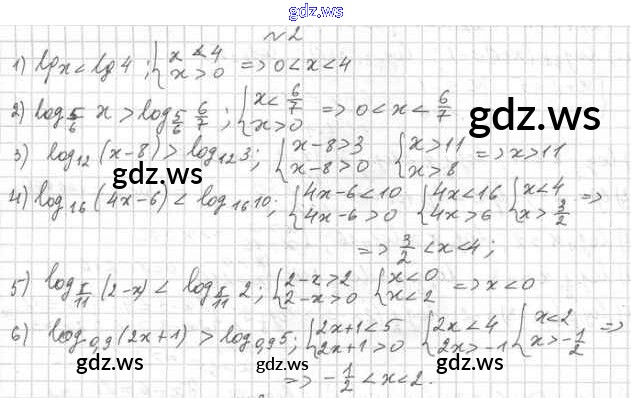 gdz.ru
№2
1) lg x < lg 4; { x < 4 x > 0 => 0 < x < 4
2) log 5/6 x > log 5/6 6/7; { x < 6/7 x > 0 => 0 < x < 6/7
gdz.ru
3) log₁₂(x-8) > log₁₂3; { x-8>3 x-8>0 { x>11 x>8 => x>11
gdz.ru
4) log₁₆(4x-6) < log₁₆10; { 4x-6<10 4x-6>0 { 4x<16 4x>6 { x<4 x>3/2 =>
=> 3/2 < x < 4;
5) log /11 (2-x) < log /11 2; { 2-x>2 2-x>0 { x<0 x<2 => x<0
gdz.ru
6) log₀,₉(2x+1) > log₀,₉5; { 2x+1<5 2x+1>0 { 2x<4 2x>-1 { x<2 x>-1/2 =>
=> -1/2 < x < 2.
gdz.ru gdz.ru
gdz.ru